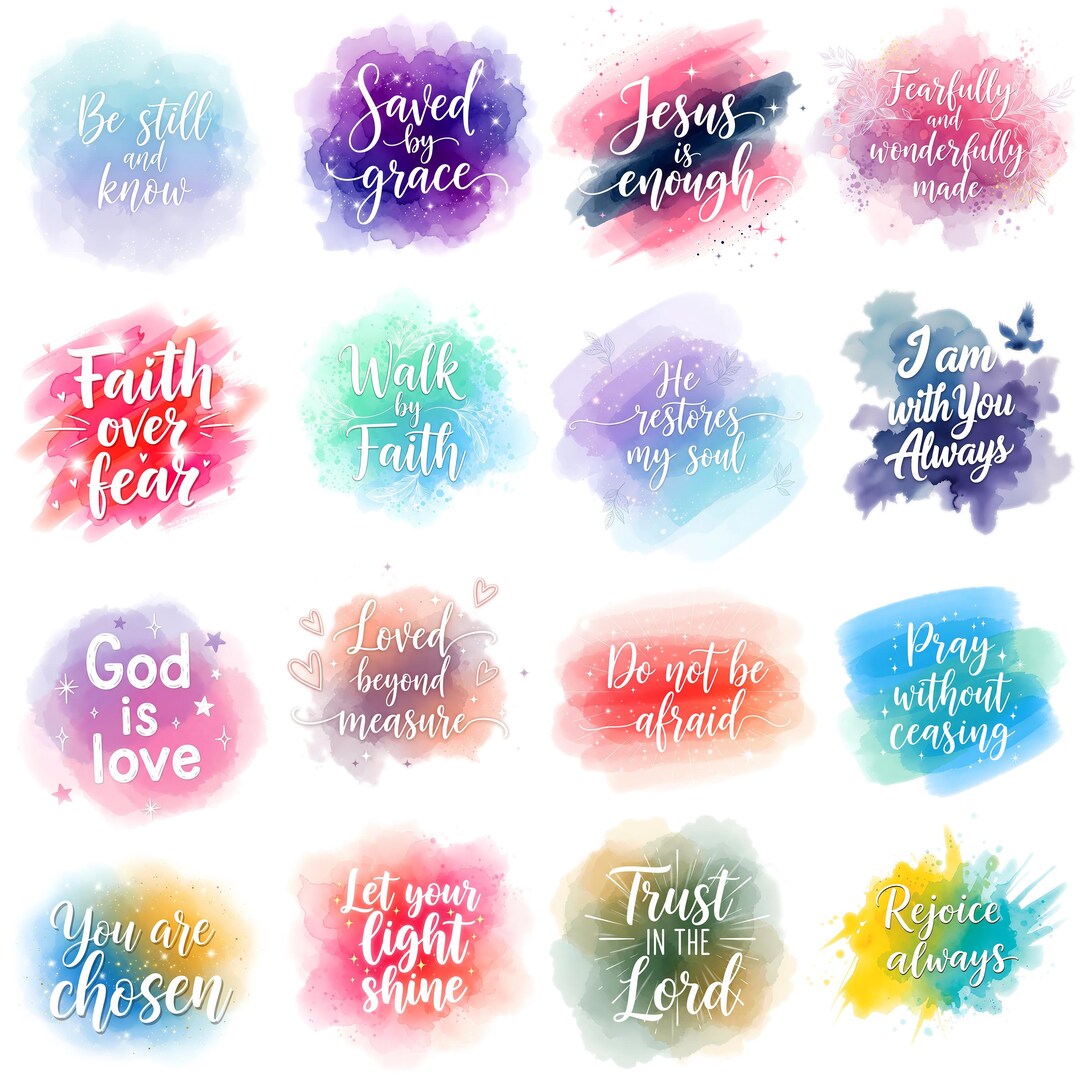 Be still
and
know
Saved
by
grace
Jesus
is
enough
Fearfully
and
wonderfully
made
Faith
over
fear
Walk
by
Faith
He
restores
my soul
I am
with You
Always
God
is
love
Loved
beyond
measure
Do not be
afraid
Pray
without
ceasing
You are
chosen
Let your
light
shine
Trust
IN THE
Lord
Rejoice
always